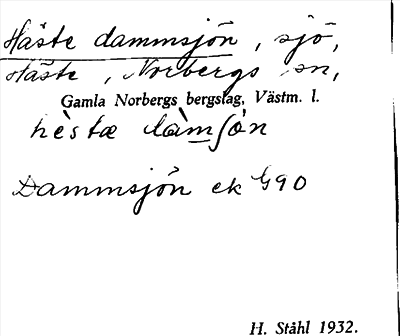 Häste dammsjön, sjö,
Häste, Norbergs sn,
Gamla Norbergs bergslag, Västm. l.
hὲstæ dàmʃὼn
Dammsjön ek G90
H. Ståhl 1932.